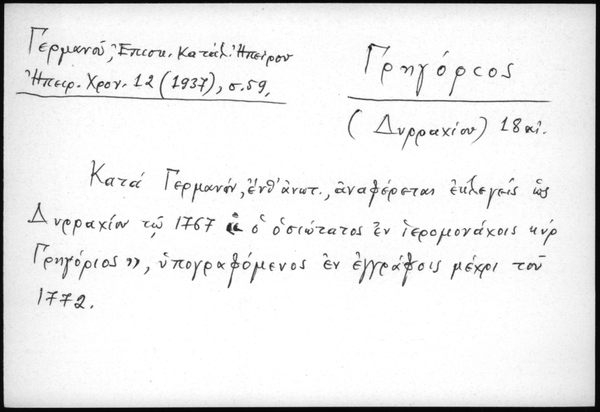 Γερμανοῦ, Ἐπισκ. Κατάλ. Ἠπείρου
Ἠπειρ. Χρον. 12 (1937), σ. 59.
Γρηγόριος
(Δυρραχίου) 18 αἰ.
Κατά Γερμανόν, ἔνθ' ἀνωτ., ἀναφέρεται ἐκλεγείς ὡς
Δυρραχίου τῷ 1767 « ὁ ὁσιώτατος ἐν ἱερομονάχοις κύρ
Γρηγόριος », ὑπογραφόμενος ἐν ἐγγράφοις μέχρι τοῦ
1772.